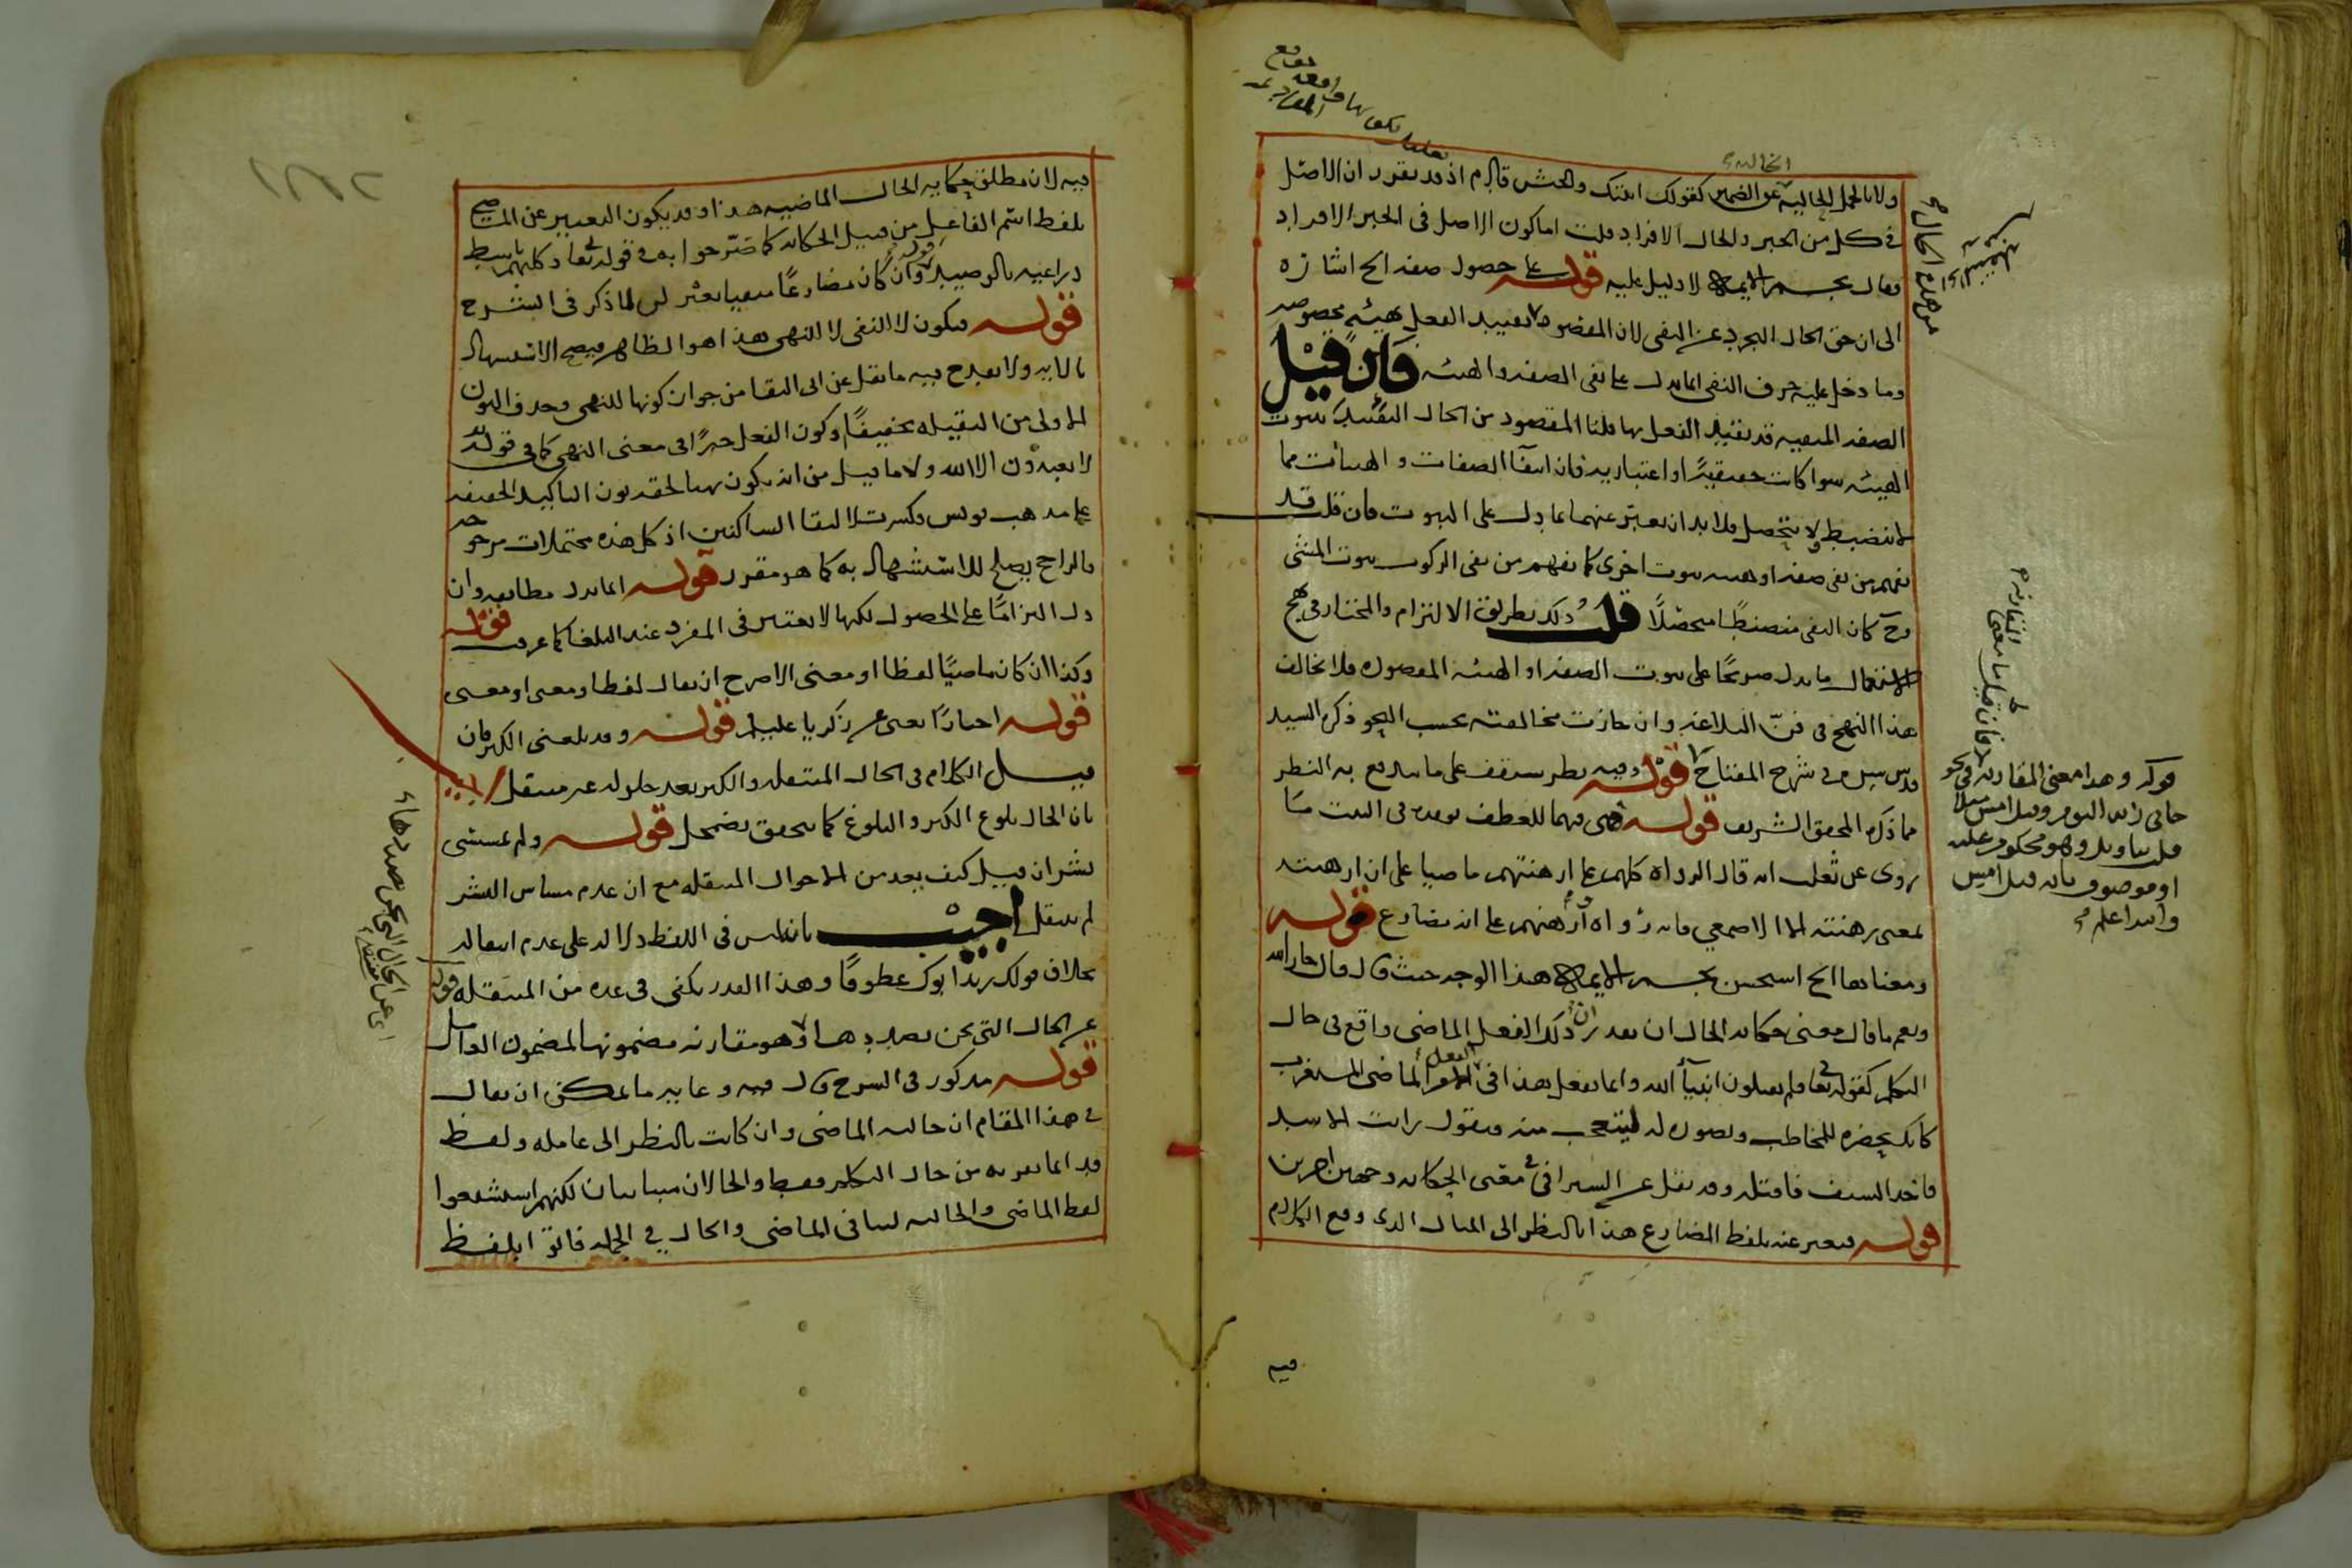 ولا بالجمل الحالية عن الضمير كقولك اتيتك والجيش قادم اذ قد تقرر ان الاصل
في كل من الخبر والحال الافراد قلت اما كون الاصل في الخبر الافراد
فقال نجم الايمة لا دليل عليه قوله على حصول صفة الخ اشارة
الى ان حق الحال التجرد عن النفي لان المقصود تقييد الفعل بهيئة مخصوصة
وما دخل عليه حرف النفي انما يدل على نفي الصفة والهيئة فان قيل
الصفة المنفية قد تقيد الفعل بها قلنا المقصود من الحال التقييد بثبوت
الهيئة سوا كانت حقيقية او اعتبارية فان انتفا الصفات والهيئات مما
لا ينضبط ولا يتحصل فلا بد ان يعبر عنهما بما يدل على الثبوت فان قلت قد
يفهم من نفي صفة او هيئة ثبوت اخرى كما يفهم من نفي الركوب ثبوت المشي
وح كان النفي منضبطا متحصلا قلت ذلك بطريق الالتزام والمختار في نهج
الاستعمال ما يدل صريحا على ثبوت الصفة او الهيئة المقصودة فلا يخالف
هذا النهج في فن البلاغة وان جازت مخالفته بحسب النحو ذكره السيد
قدس سره في شرح المفتاح قوله وفيه نظر ستقف على ما يندفع به النظر
مما ذكره المحقق الشريف قوله فهي فيهما للعطف نعم في البيت
روي عن ثعلب انه قال الرواة كلهم على ارهنتهم ماضيا على ان ارهنته
بمعنى رهنته الا الاصمعي فانه رواه وارهنهم على انه مضارع قوله
ومعناها الخ استحسن نجم الايمة هذا الوجه حيث قال قال جار الله
ونعم ما قال معنى حكاية الحال ان يقدر ان ذلك الفعل الماضي واقع في حال
التكلم كقوله تعا فلم تقتلون انبيآء الله وانما يفعل هذا في الفعل الماضي المستغرب
كانك تحضره للمخاطب وتصوره له ليتعجب منه وتقول رايت الاسد
فاخذ السيف فاقتله وقد نقل عن السيرافي في معنى الحكاية وجهين اخرين
قوله فيعبر عنه بلفظ المضارع هذا بالنظر الى المثال الذي وقع الكلام
قوله وهذا معنى المقارنة في نحو
جاني زيد اليوم وقبل امس
قلت بتاويل وهو محكوم عليه
او موصوف بانه قبل امس
والله اعلم
فيه
فيه لان مطلق حكاية الحال الماضية هذا وقد يكون التعبير عن الماضي
بلفظ اسم الفاعل من قبيل الحكاية كما صرحوا به في قوله تعا وكلبهم باسط
ذراعيه بالوصيد قوله وان كان مضارعا منفيا لما ذكر في الشرح
قوله فيكون لا النفي لا النهي هذا هو الظاهر فيصح الاستشهاد
بالاية ولا يقدح فيه ما نقل عن ابي البقا من جواز كونها للنهي وحذف النون
الاولى من الثقيلة تخفيفا وكون الفعل خبرا في معنى النهي كما في قوله
لا تعبدون الا الله ولا ما قيل من انه يكون نهيا لحقه نون التاكيد الخفيفة
على مذهب يونس وكسرت لالتقا الساكنين اذ كل هذه محتملات مرجوحة
والراجح يصلح للاستشهاد به كما هو مقرر قوله انما يدل مطابقة وان
دل التزاما على الحصول لكنها لا يعتبر في المفرد عند البلغا كما عرفت قوله
وكذا ان كان ماضيا لفظا او معنى الاصرح ان يقال لفظا ومعنى او معنى
قوله اخبارا يعني عن زكريا عليه قوله وقد بلغني الكبر فان
قيل الكلام في الحال المنتقلة والكبر بعد حلوله غير منتقل اجيب
بان الحال بلوغ الكبر والبلوغ كما يتحقق يضمحل قوله ولم يمسسني
بشر ان قيل كيف يعد من الاحوال المنتقلة مع ان عدم مساس البشر
لم ينتقل اجيب بانه ليس في اللفظ دلالة على عدم انتقاله
بخلاف قولك زيد ابوك عطوفا وهذا القدر يكفي في عده من المنتقلة قوله
عن الحال التي نحن بصددها وهو مقارنة مضمونها لمضمون العامل
قوله مذكور في الشرح قال فيه وغاية ما يمكن ان يقال
في هذا المقام ان حالية الماضي وان كانت بالنظر الى عامله ولفظ
قد انما يقربه من حال التكلم فقط والحالان متباينان لكنهم استشبعوا
لفظ الماضي والحالية لتنافي الماضي والحال في الجملة فاتوا بلفظ
اي عن الحال التي نحن بصددها